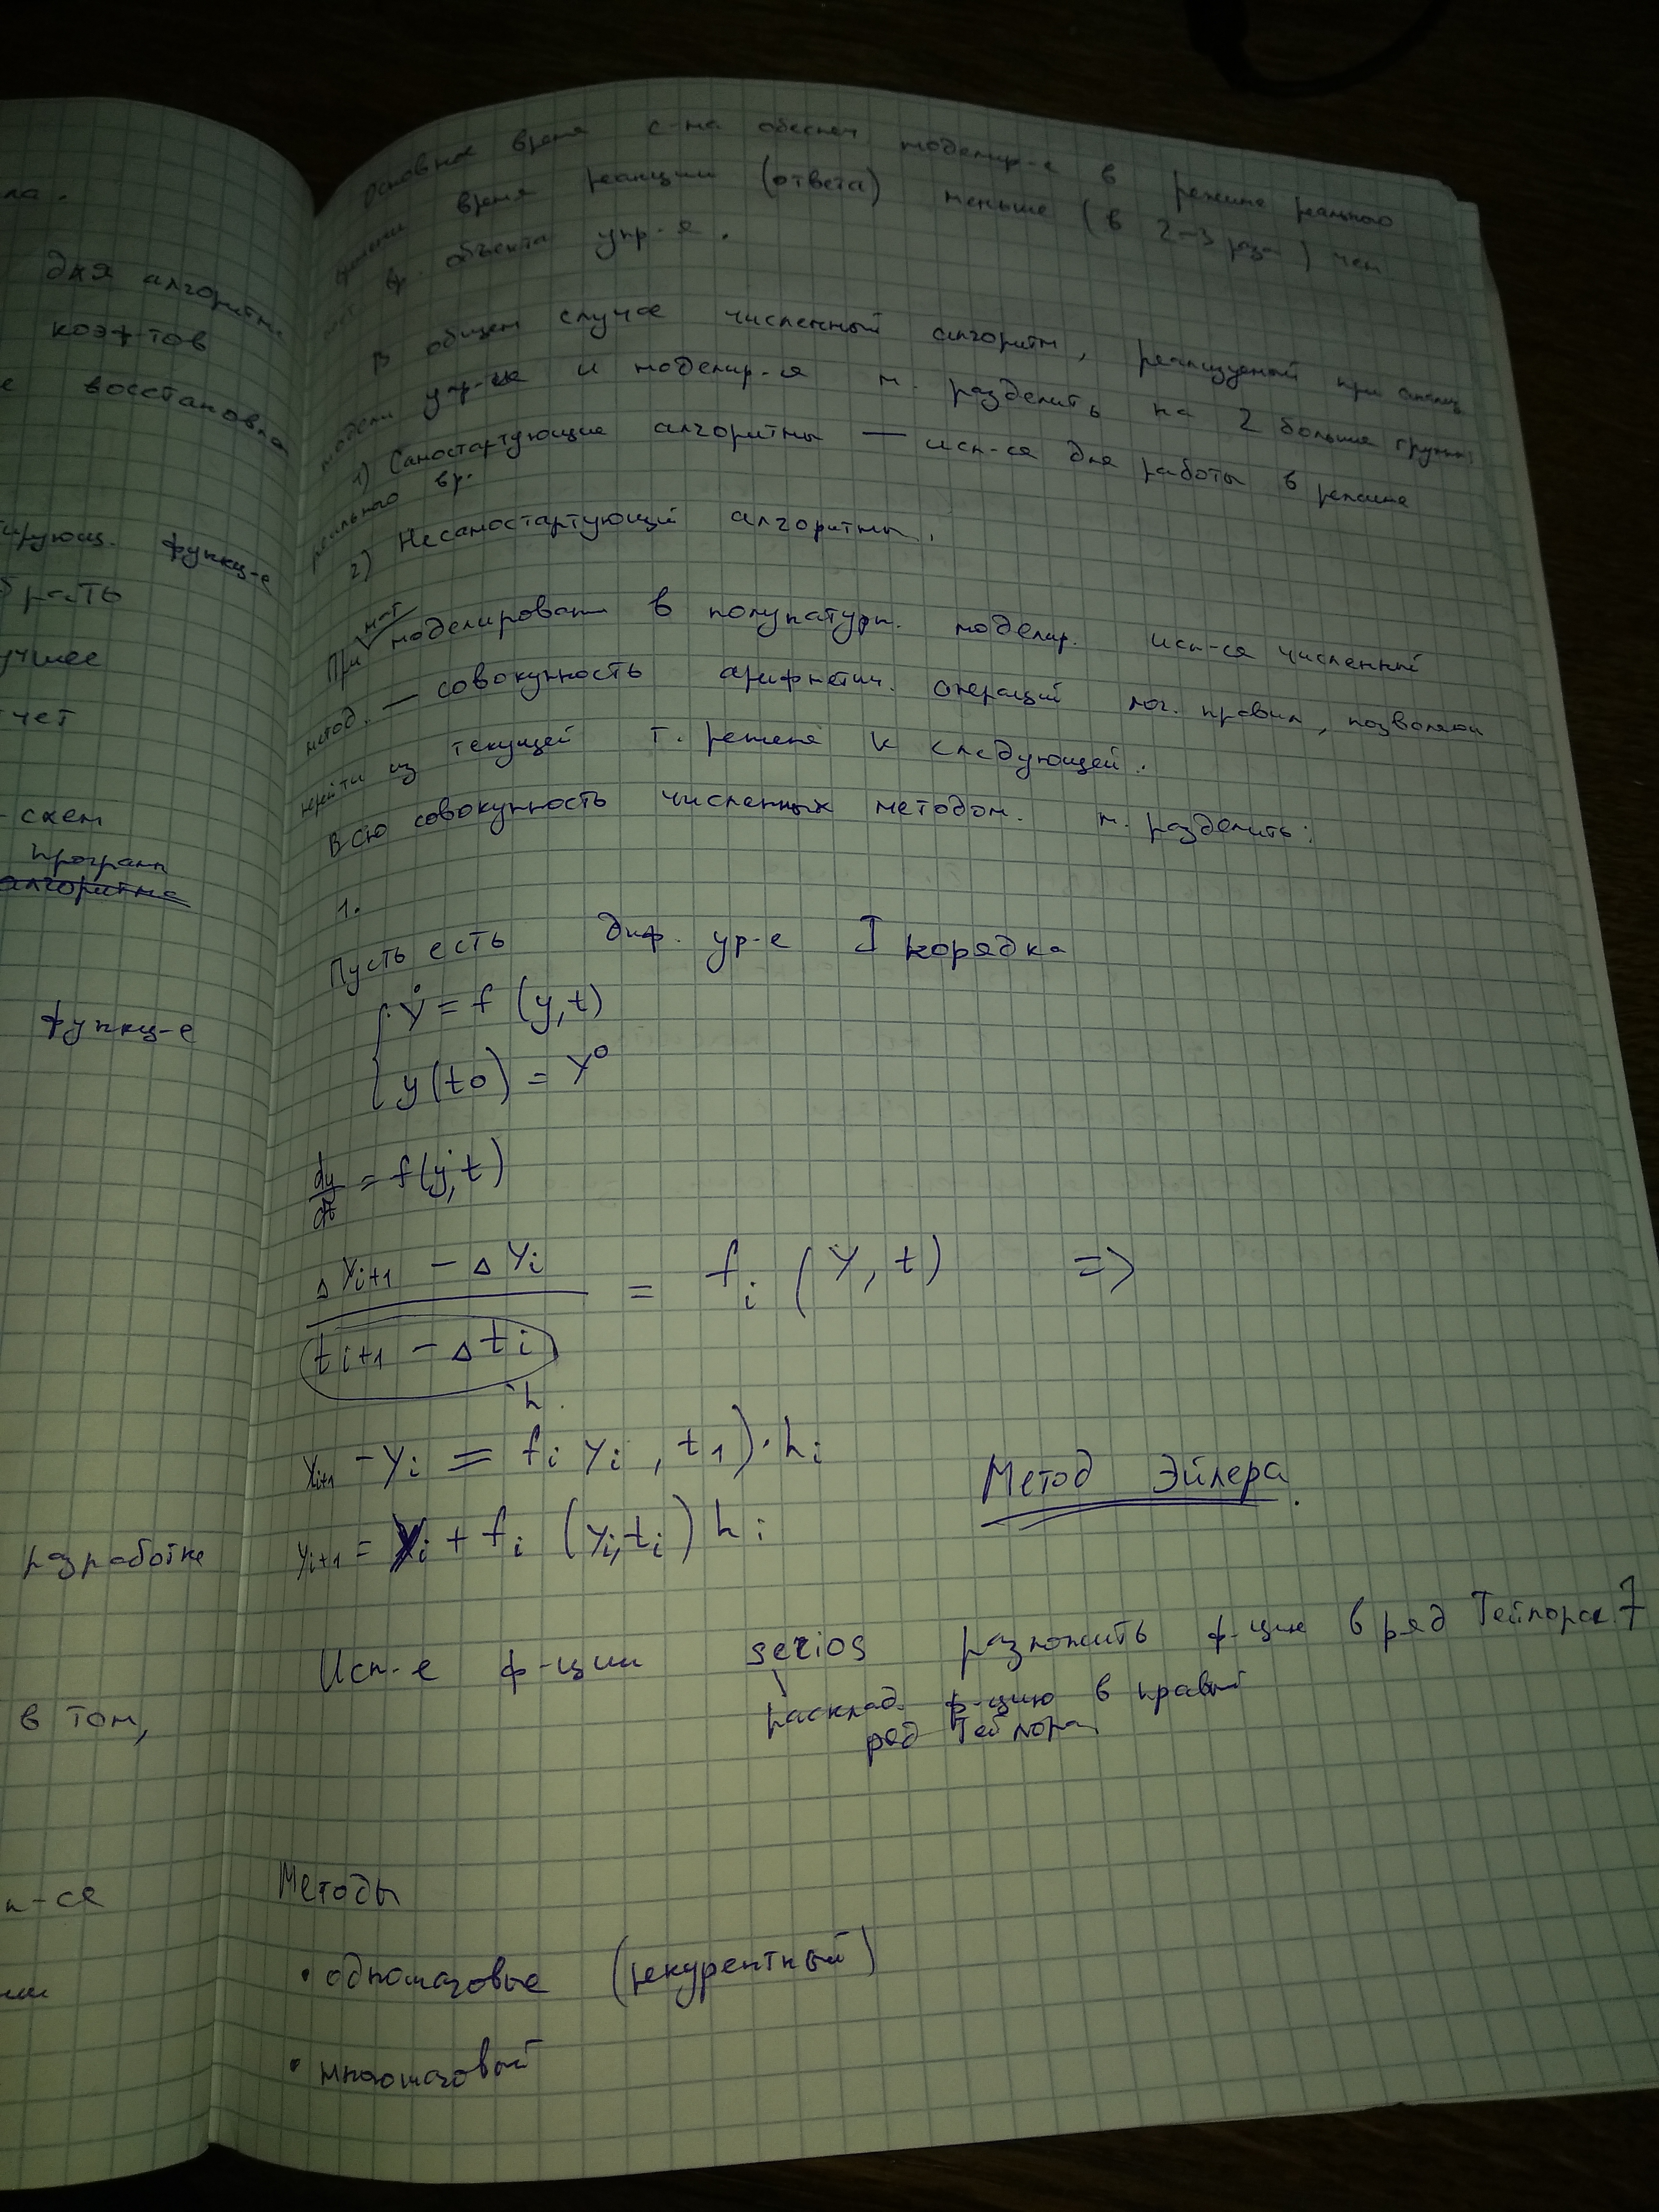 ла.
для алгоритма
коэф-тов
е восстановла
ирующ. функц-е
брать
учшее
чет
- схем
програм
алгоритма
функц-е
разработке
в том,
п-ся
ии
Основное время с-ма обеспеч. моделир-е в режиме реального
времени время реакции (ответа) меньше (в 2-3 раза) чем
объекта упр-я.
В общем случае численный алгоритм, реализуемый при анализ
модели упр-ия и моделир-я м. разделить на 2 больше группы:
1) Самостартующие алгоритмы — исп-ся для работы в режиме
реального вр.
2) Несамостартующий алгоритмы.
мат
При моделирован в полунатурн. моделир. исп-ся численный
метод. — совокупность арифметич. операций лог. правил, позволяющ
перейти из текущей т. решеня к следующей.
Всю совокупность численных методом. м. разделить:
1.
Пусть есть диф. ур-е I порядка
ẏ = f (y, t)
y(t0) = y⁰
dy/dt = f(y, t)
Δyi+1 − Δyi / ti+1 − Δti = fi (y, t) =>
h.
yi+1 − yi = fi yi, t1)·hi
yi+1 = yi + fi (yi, ti) hi
Метод Эйлера.
Исп-е ф-ции serios разложить ф-цию в ряд Тейлора 7
расклад. ф-цию в правый
ряд Тейлора
Методы
• одношаговые (рекурентный)
• многошаговый